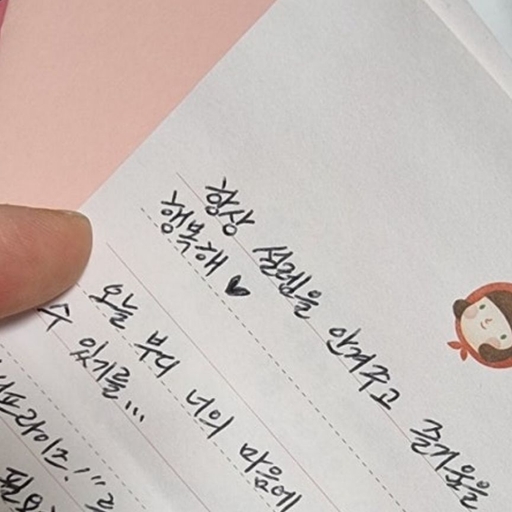 항상 설렘을 안겨주고 즐거움을
행복해 ♥
오늘 부디 너의 마음에
수 있기를...
프라이즈!"